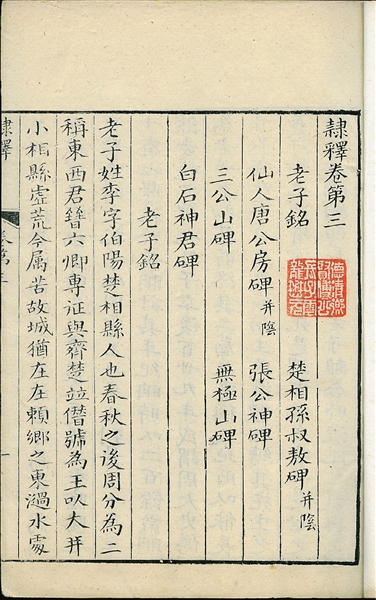 隷釋卷第三
老子銘 楚相孫叔敖碑并陰
仙人唐公房碑并陰 張公神碑
三公山碑 無極山碑
白石神君碑
老子銘
老子姓李字伯陽楚相縣人也春秋之後周分為二
稱東西君晉六卿專征與齊楚竝僭號為王以大并
小相縣虛荒今属苦故城猶在在賴鄉之東濄水䖏
隷釋